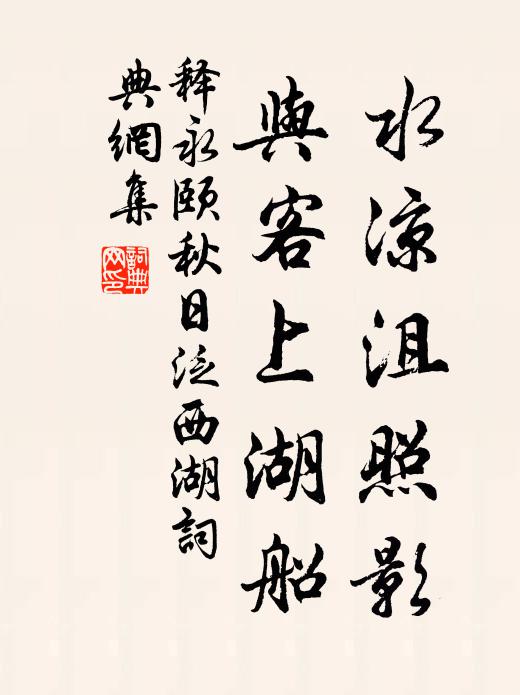 水涼沮照影
與客上湖船
释永颐秋日泛西湖詞
典網集
詞典
网印